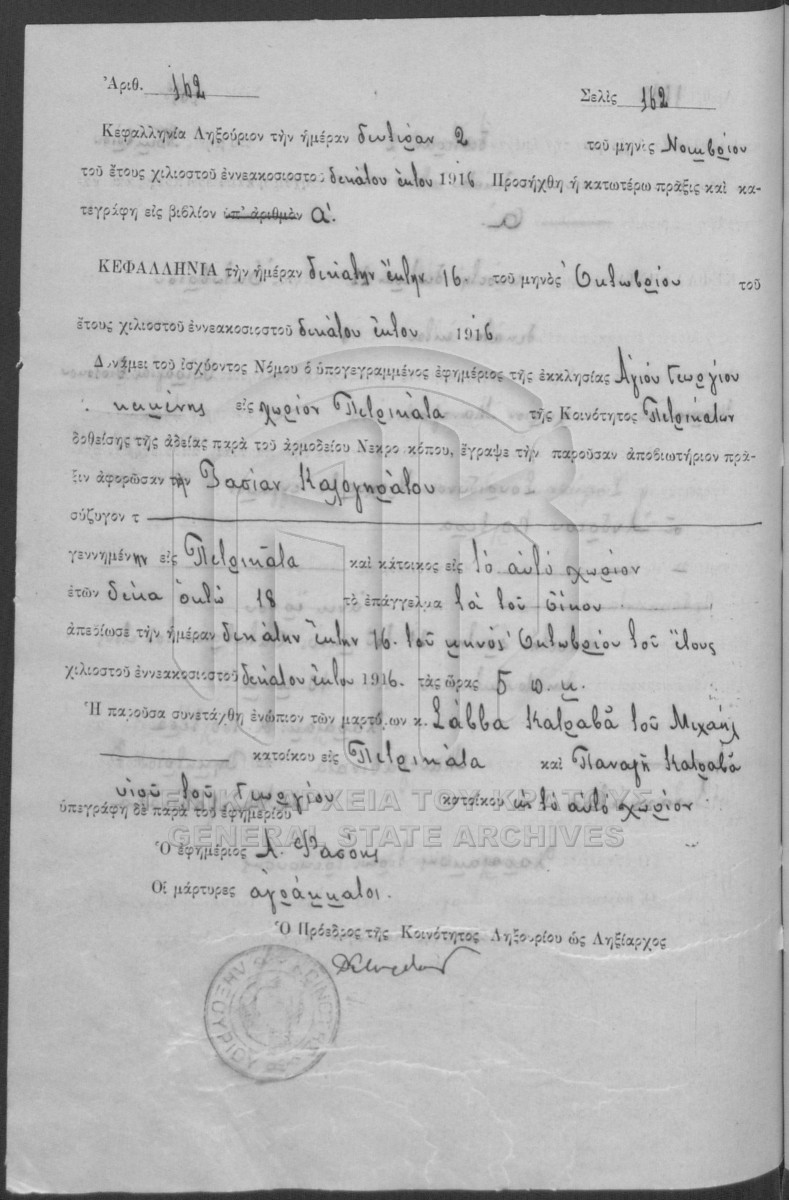 Ἀριθ. 162 Σελὶς 162
Κεφαλληνία Ληξούριον τὴν ἡμέραν δευτέραν 2 τοῦ μηνὸς Νοεμβρίου
τοῦ ἔτους χιλιοστοῦ ἐννεακοσιοστοῦ δεκάτου ἕκτου 1916 Προσήχθη ἡ κατωτέρω πρᾶξις καὶ κα-
τεγράφη εἰς βιβλίον ὑπ' ἀριθμὸν Α'.
ΚΕΦΑΛΛΗΝΙΑ τὴν ἡμέραν δεκάτην ἕκτην 16. τοῦ μηνὸς Ὀκτωβρίου τοῦ
ἔτους χιλιοστοῦ ἐννεακοσιοστοῦ δεκάτου ἕκτου 1916
Δυνάμει τοῦ ἰσχύοντος Νόμου ὁ ὑπογεγραμμένος ἐφημέριος τῆς ἐκκλησίας Ἁγίου Γεωργίου
εἰς χωρίον Πετρικάτα τῆς Κοινότητος Πετρικάτων
δοθείσης τῆς ἀδείας παρὰ τοῦ ἁρμοδείου Νεκροσκόπου, ἔγραψε τὴν παροῦσαν ἀποβιωτήριον πρᾶ-
ξιν ἀφορῶσαν τὴν Βασίαν Καλογηράτου
σύζυγον τ
γεννημένην εἰς Πετρικάτα καὶ κάτοικος εἰς τὸ αὐτὸ χωρίον
ἐτῶν δέκα ὀκτὼ 18 τὸ ἐπάγγελμα τὰ τοῦ οἴκου
ἀπεβίωσε τὴν ἡμέραν δεκάτην ἕκτην 16. τοῦ μηνὸς Ὀκτωβρίου τοῦ ἔτους
χιλιοστοῦ ἐννεακοσιοστοῦ δεκάτου ἕκτου 1916. τὰς ὥρας 5 μ.
Ἡ παροῦσα συνετάχθη ἐνώπιον τῶν μαρτύρων κ. Σάββα Κατραβᾶ τοῦ Μιχαὴλ
κατοίκου εἰς Πετρικάτα καὶ Παναγῆ Κατραβᾶ
υἱοῦ τοῦ Γεωργίου κατοίκου εἰς τὸ αὐτὸ χωρίον
ὑπεγράφη δὲ παρὰ τοῦ ἐφημερίου
ΓΕΝΙΚΑ ΑΡΧΕΙΑ ΤΟΥ ΚΡΑΤΟΥΣ
GENERAL STATE ARCHIVES
Ὁ ἐφημέριος
Οἱ μάρτυρες ἀγράμματοι.
Ὁ Πρόεδρος τῆς Κοινότητος Ληξουρίου ὡς Ληξίαρχος